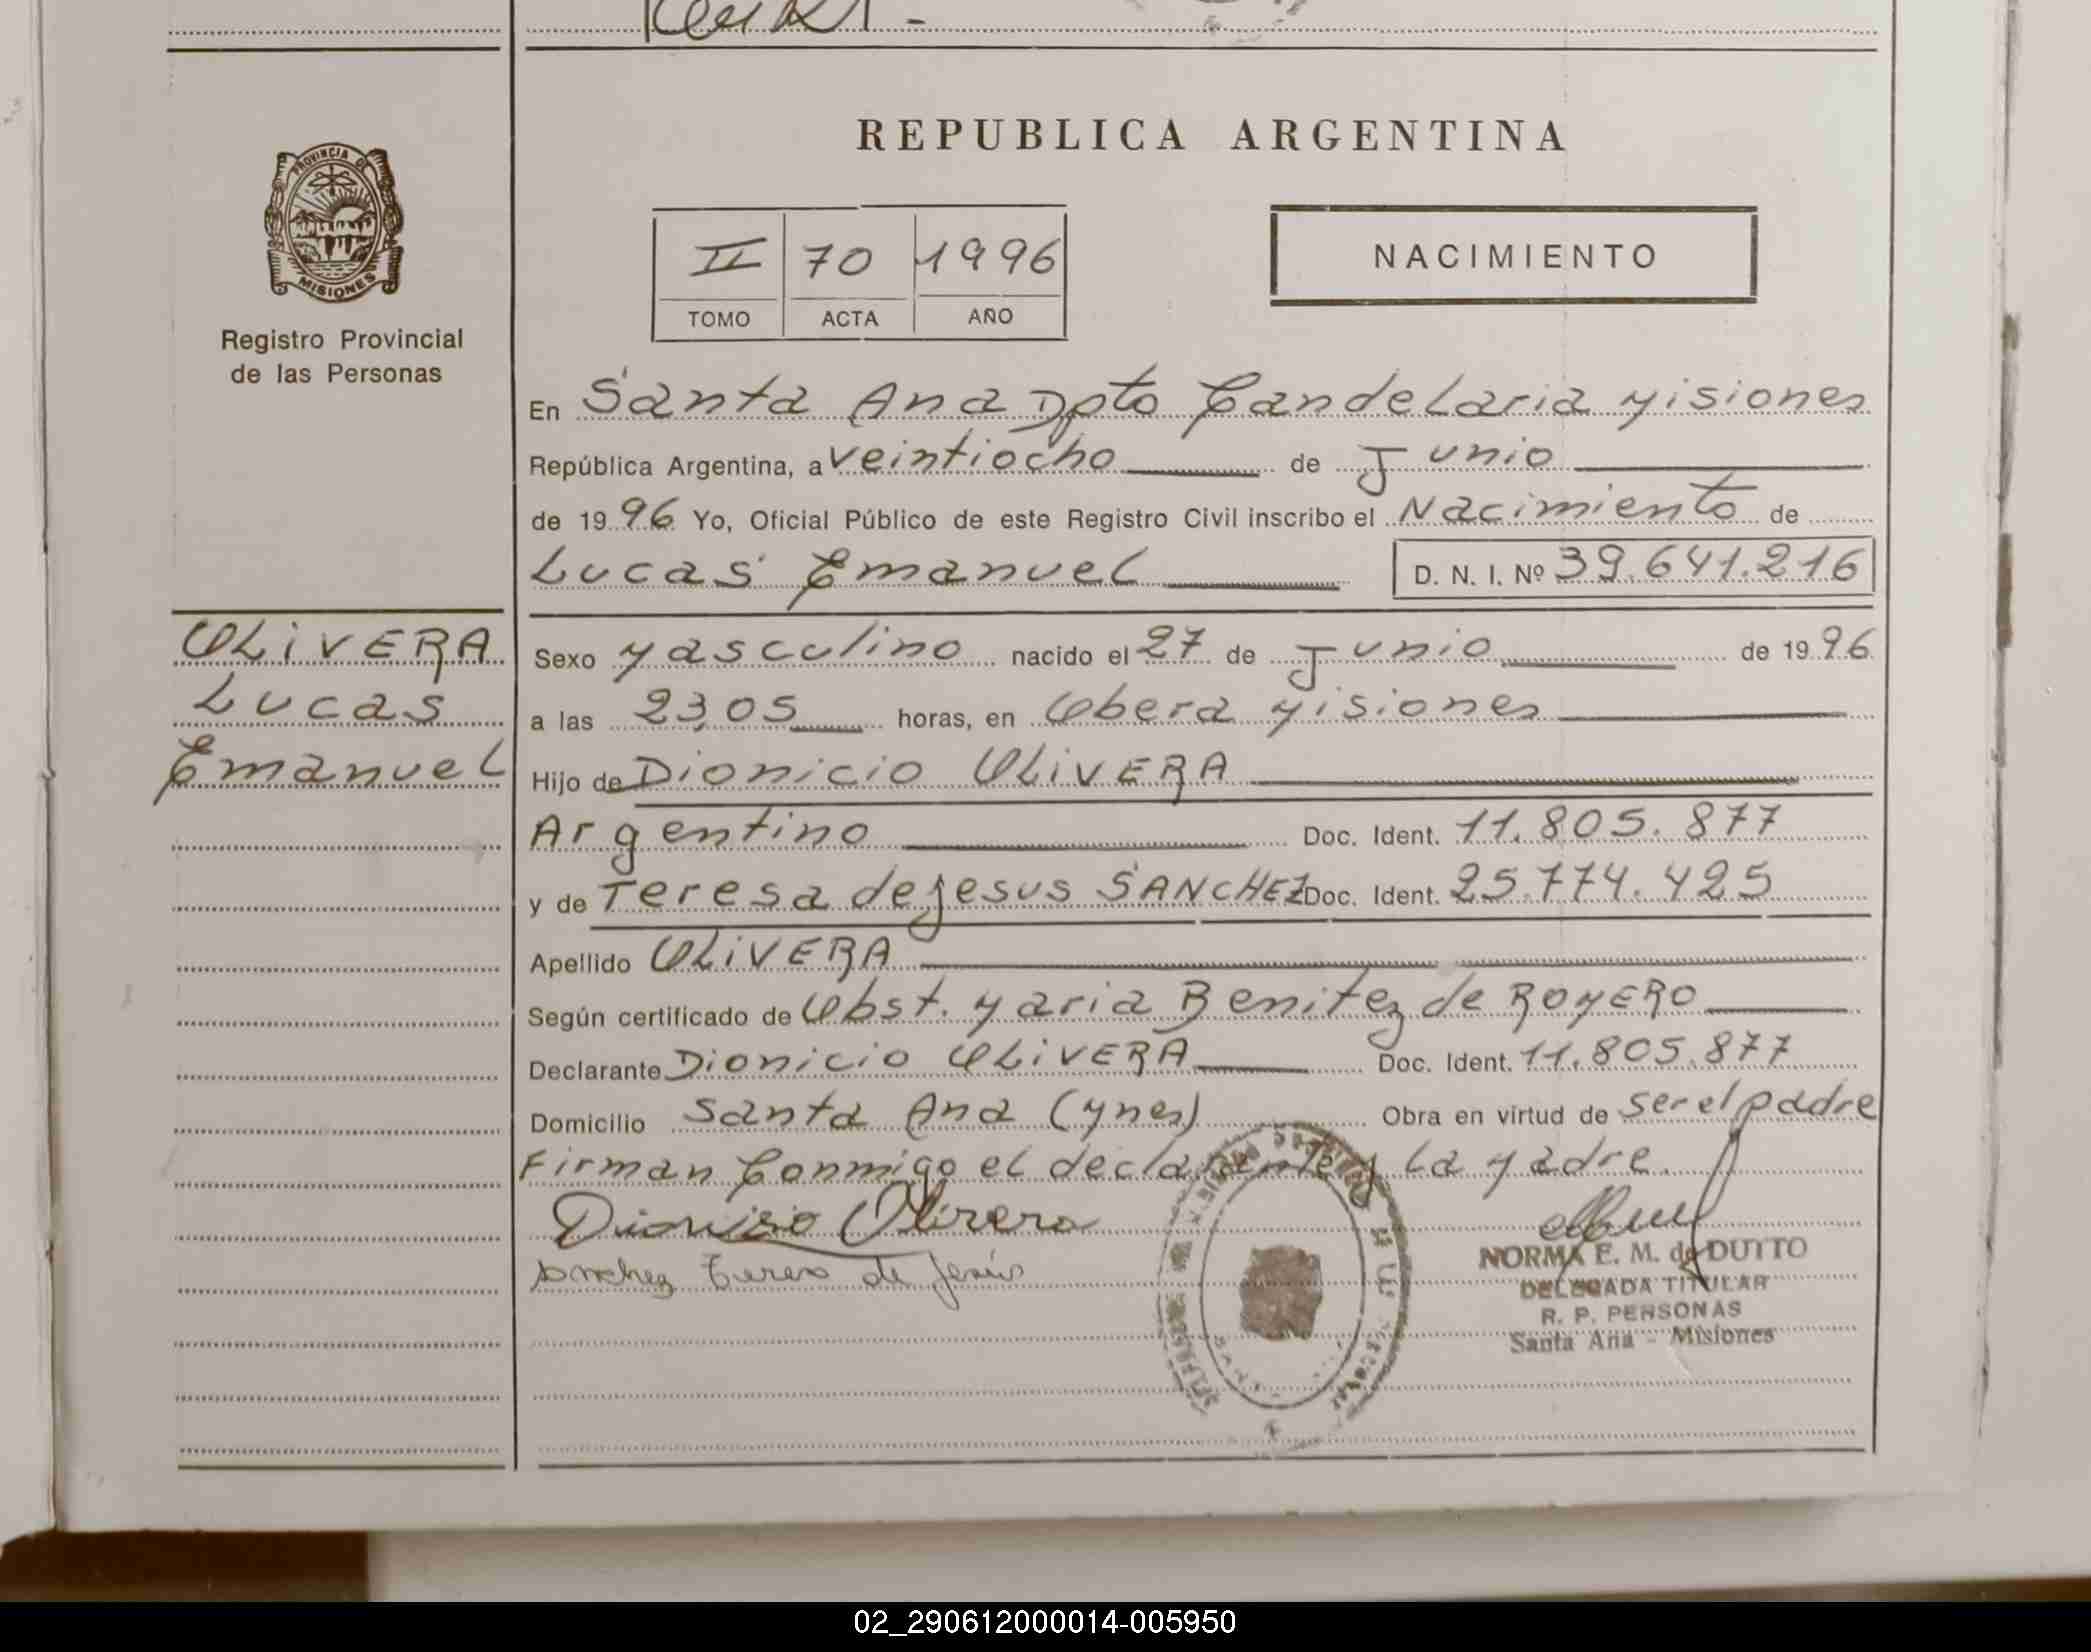 REPUBLICA ARGENTINA
PROVINCIA DE
MISIONES
Registro Provincial
de las Personas
II 70 1996
TOMO ACTA AÑO
NACIMIENTO
En Santa Ana Dpto Candelaria Misiones
República Argentina, a veintiocho de Junio
de 1996 Yo, Oficial Público de este Registro Civil inscribo el Nacimiento de
Lucas Emanuel D. N. I. Nº 39.641.216
OLiVERA
Lucas
Emanuel
Sexo Masculino nacido el 27 de Junio de 1996
a las 23,05 horas, en Obera Misiones
Hijo de Dionicio OLiVERA
Argentino Doc. Ident. 11.805.877
y de Teresa de Jesus SANCHEZ Doc. Ident. 25.774.425
Apellido OLiVERA
Según certificado de Obst. Maria Benitez de ROMERO
Declarante Dionicio OLiVERA Doc. Ident. 11.805.877
Domicilio Santa Ana (Mnes) Obra en virtud de ser el padre
Firman Conmigo el declarante y la Madre.
Dionisio Olivera
Sanchez Teresa de Jesús
NORMA E. M. de DUTTO
DELEGADA TITULAR
R. P. PERSONAS
Santa Ana - Misiones
02_290612000014-005950